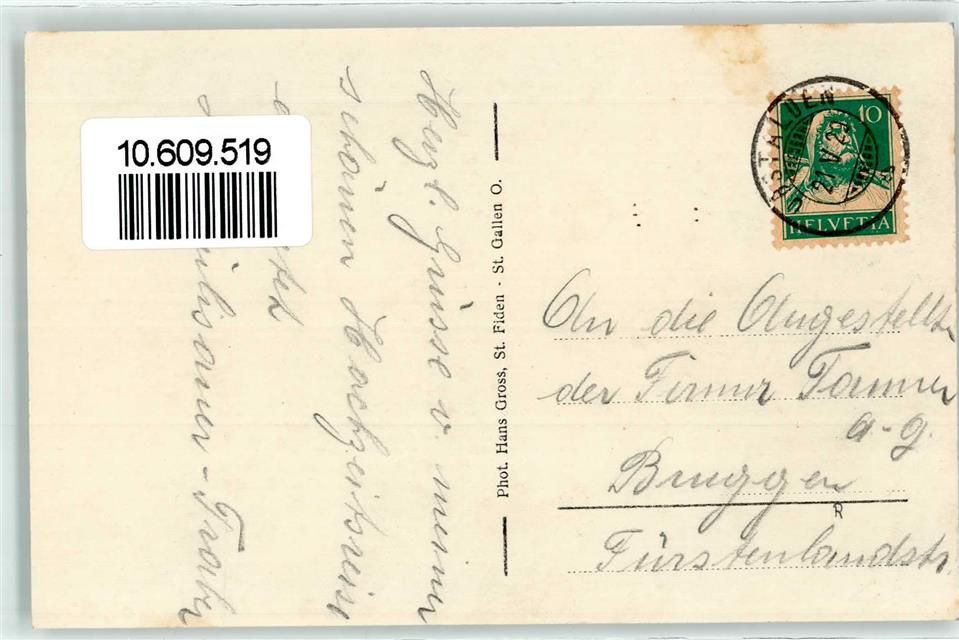 10.609.519
Herzl. Grüsse v meiner
schönen Hochzeitsreise
Phot. Hans Gross, St. Fiden - St. Gallen O.
10
HELVETIA
21.V.29
An die Angestellt
der Firma Tanner
a-g.
Bruggen
R
Fürstenlandstr